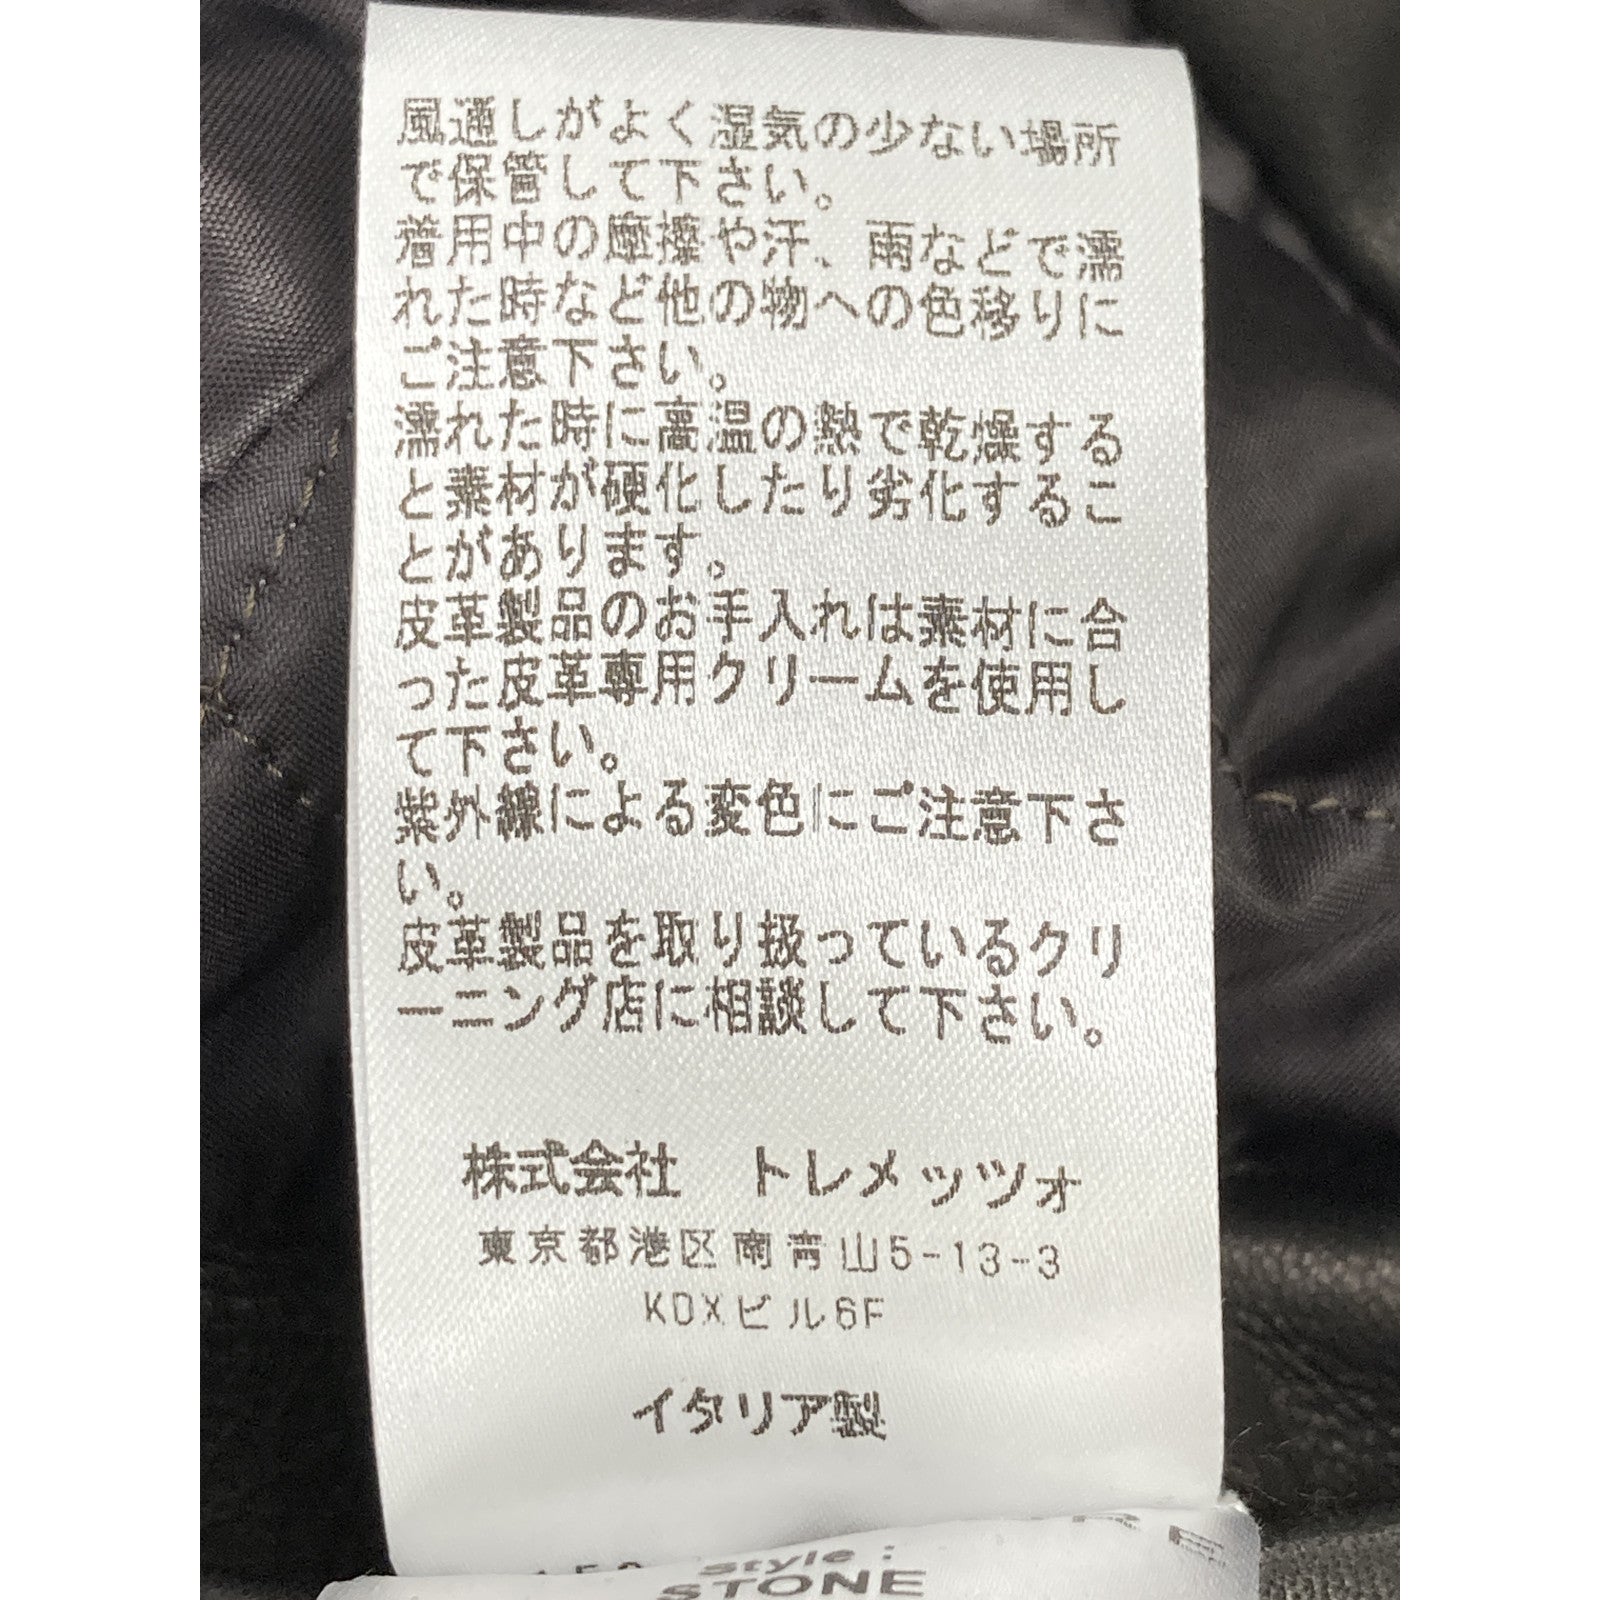 風通しがよく湿気の少ない場所
で保管して下さい。
着用中の摩擦や汗、雨などで濡
れた時など他の物への色移りに
ご注意下さい。
濡れた時に高温の熱で乾燥する
と素材が硬化したり劣化するこ
とがあります。
皮革製品のお手入れは素材に合
った皮革専用クリームを使用し
て下さい。
紫外線による変色にご注意下さ
い。
皮革製品を取り扱っているクリ
ーニング店に相談して下さい。
株式会社 トレメッツォ
東京都港区南青山5-13-3
KDXビル6F
イタリア製
Style :
STONE